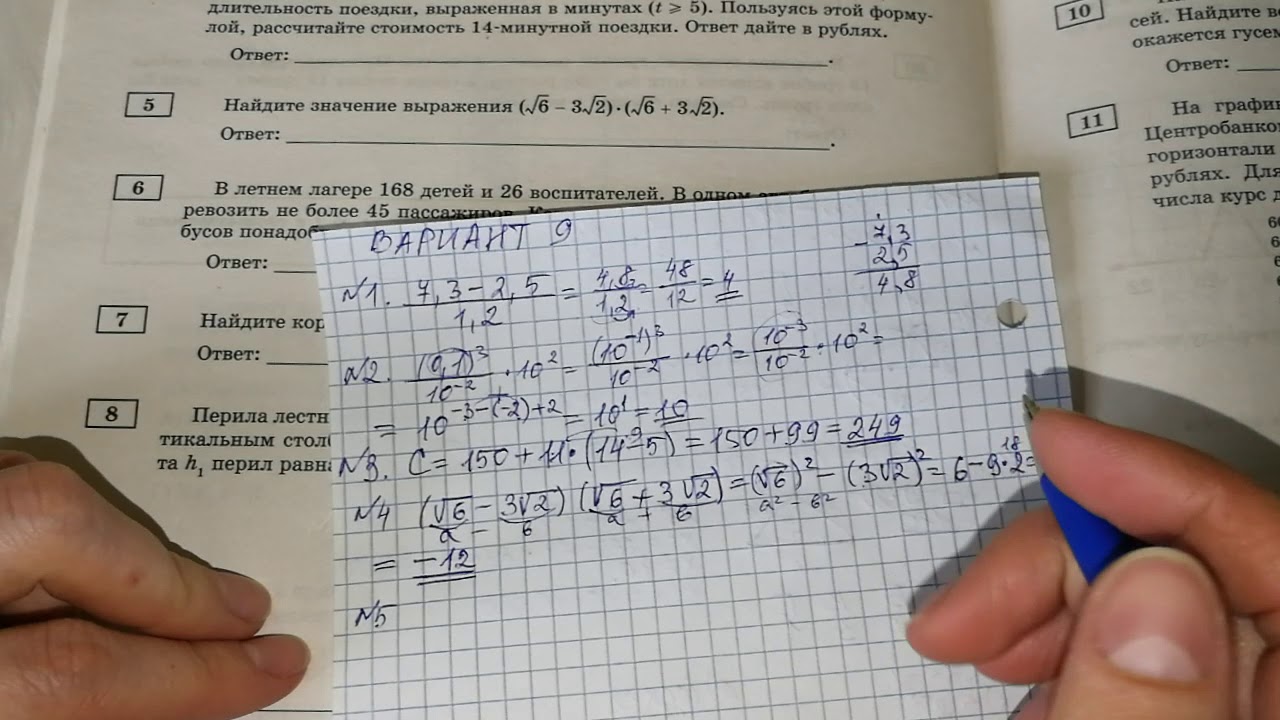 длительность поездки, выраженная в минутах (t ⩾ 5). Пользуясь этой форму-
лой, рассчитайте стоимость 14-минутной поездки. Ответ дайте в рублях.
Ответ:
5
Найдите значение выражения (√6 – 3√2)·(√6 + 3√2).
Ответ:
6
В летнем лагере 168 детей и 26 воспитателей. В одном
ревозить не более 45 пассажиров.
бусов понадоб
Ответ:
7
Найдите кор
Ответ:
8
Перила лестн
тикальным столб
та h₁ перил равна
10
сей. Найдите
окажется гусем
Ответ:
11
На график
Центробанко
горизонтали
рублях. Для
числа курс д
ВАРИАНТ 9
7,3
- 2,5
4,8
№1. (7,3 – 2,5)/1,2 = 4,8/1,2 = 48/12 = 4
№2. (0,1)³/10⁻² · 10² = (10⁻¹)³/10⁻² · 10² = 10⁻³/10⁻² · 10² =
= 10⁻³⁻⁽⁻²⁾⁺² = 10¹ = 10
№3. C = 150 + 11 · (14 – 5) = 150 + 99 = 249
9
№4 (√6 – 3√2) (√6 + 3√2) = (√6)² – (3√2)² = 6 – 9·2 =
18
а – в а + в а² – в²
= –12
№5